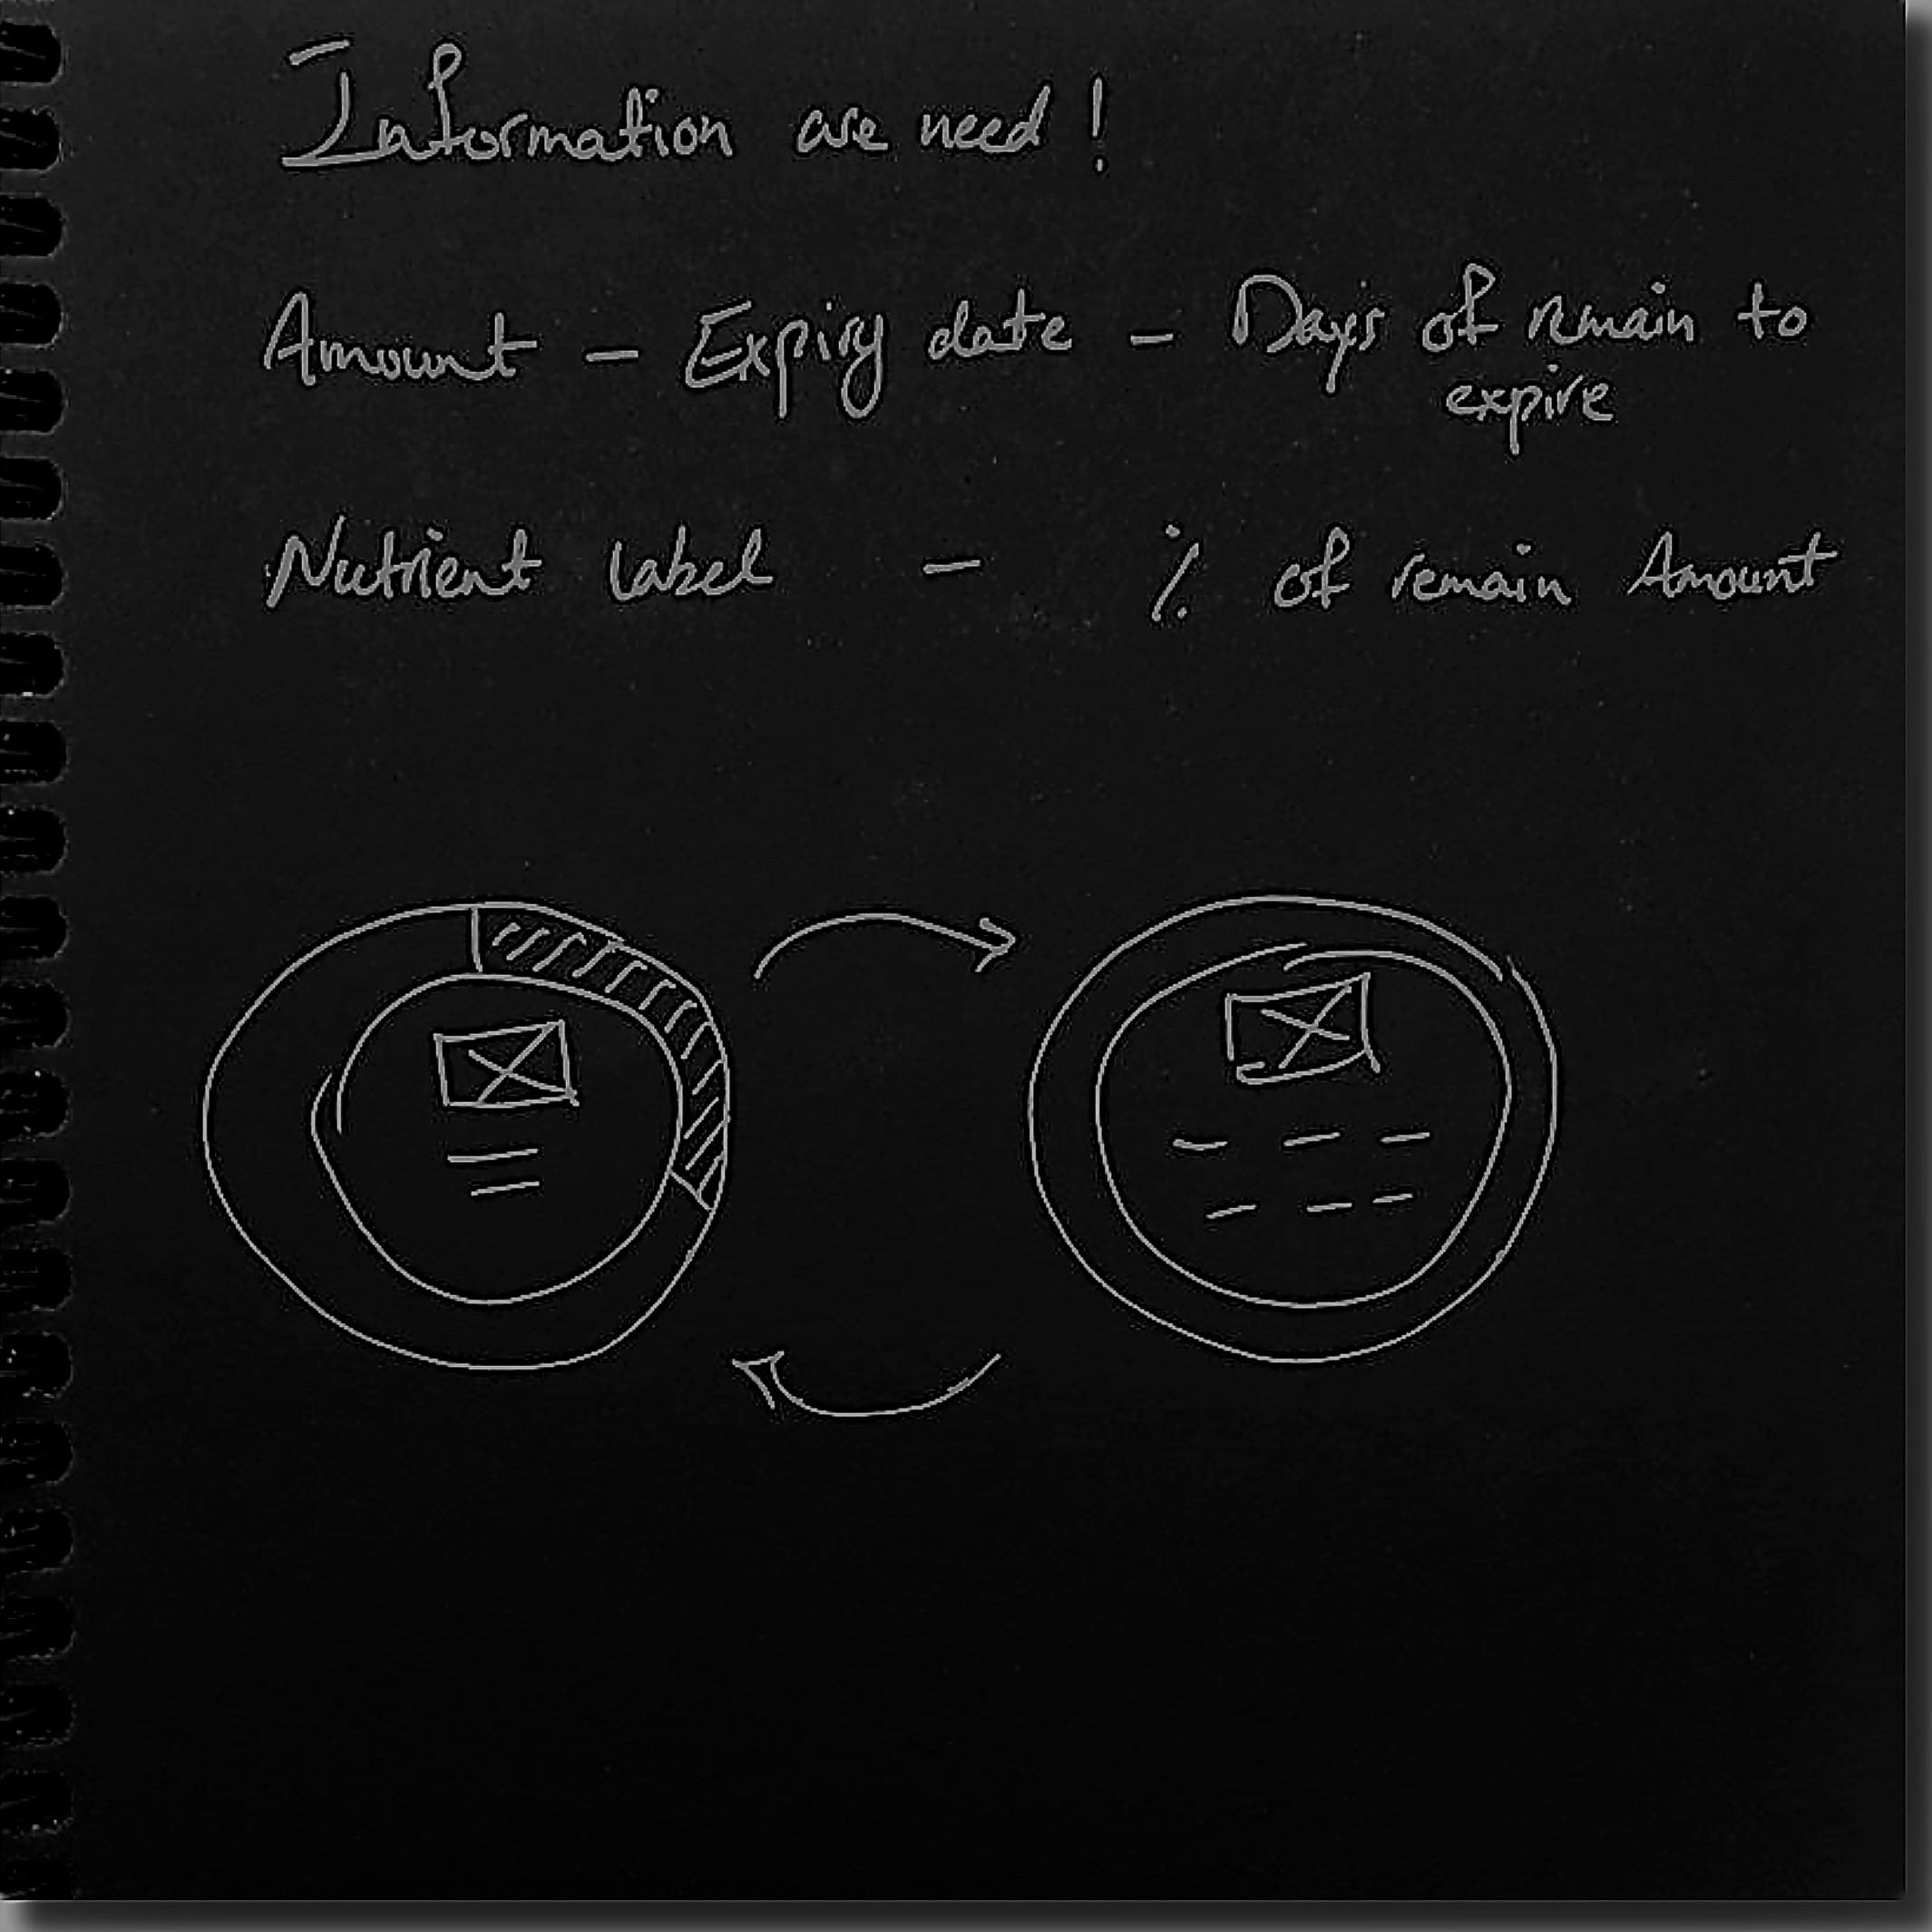 Information are need !
Amount - Expiry date - Days of remain to
expire
Nutrient label - % of remain Amount